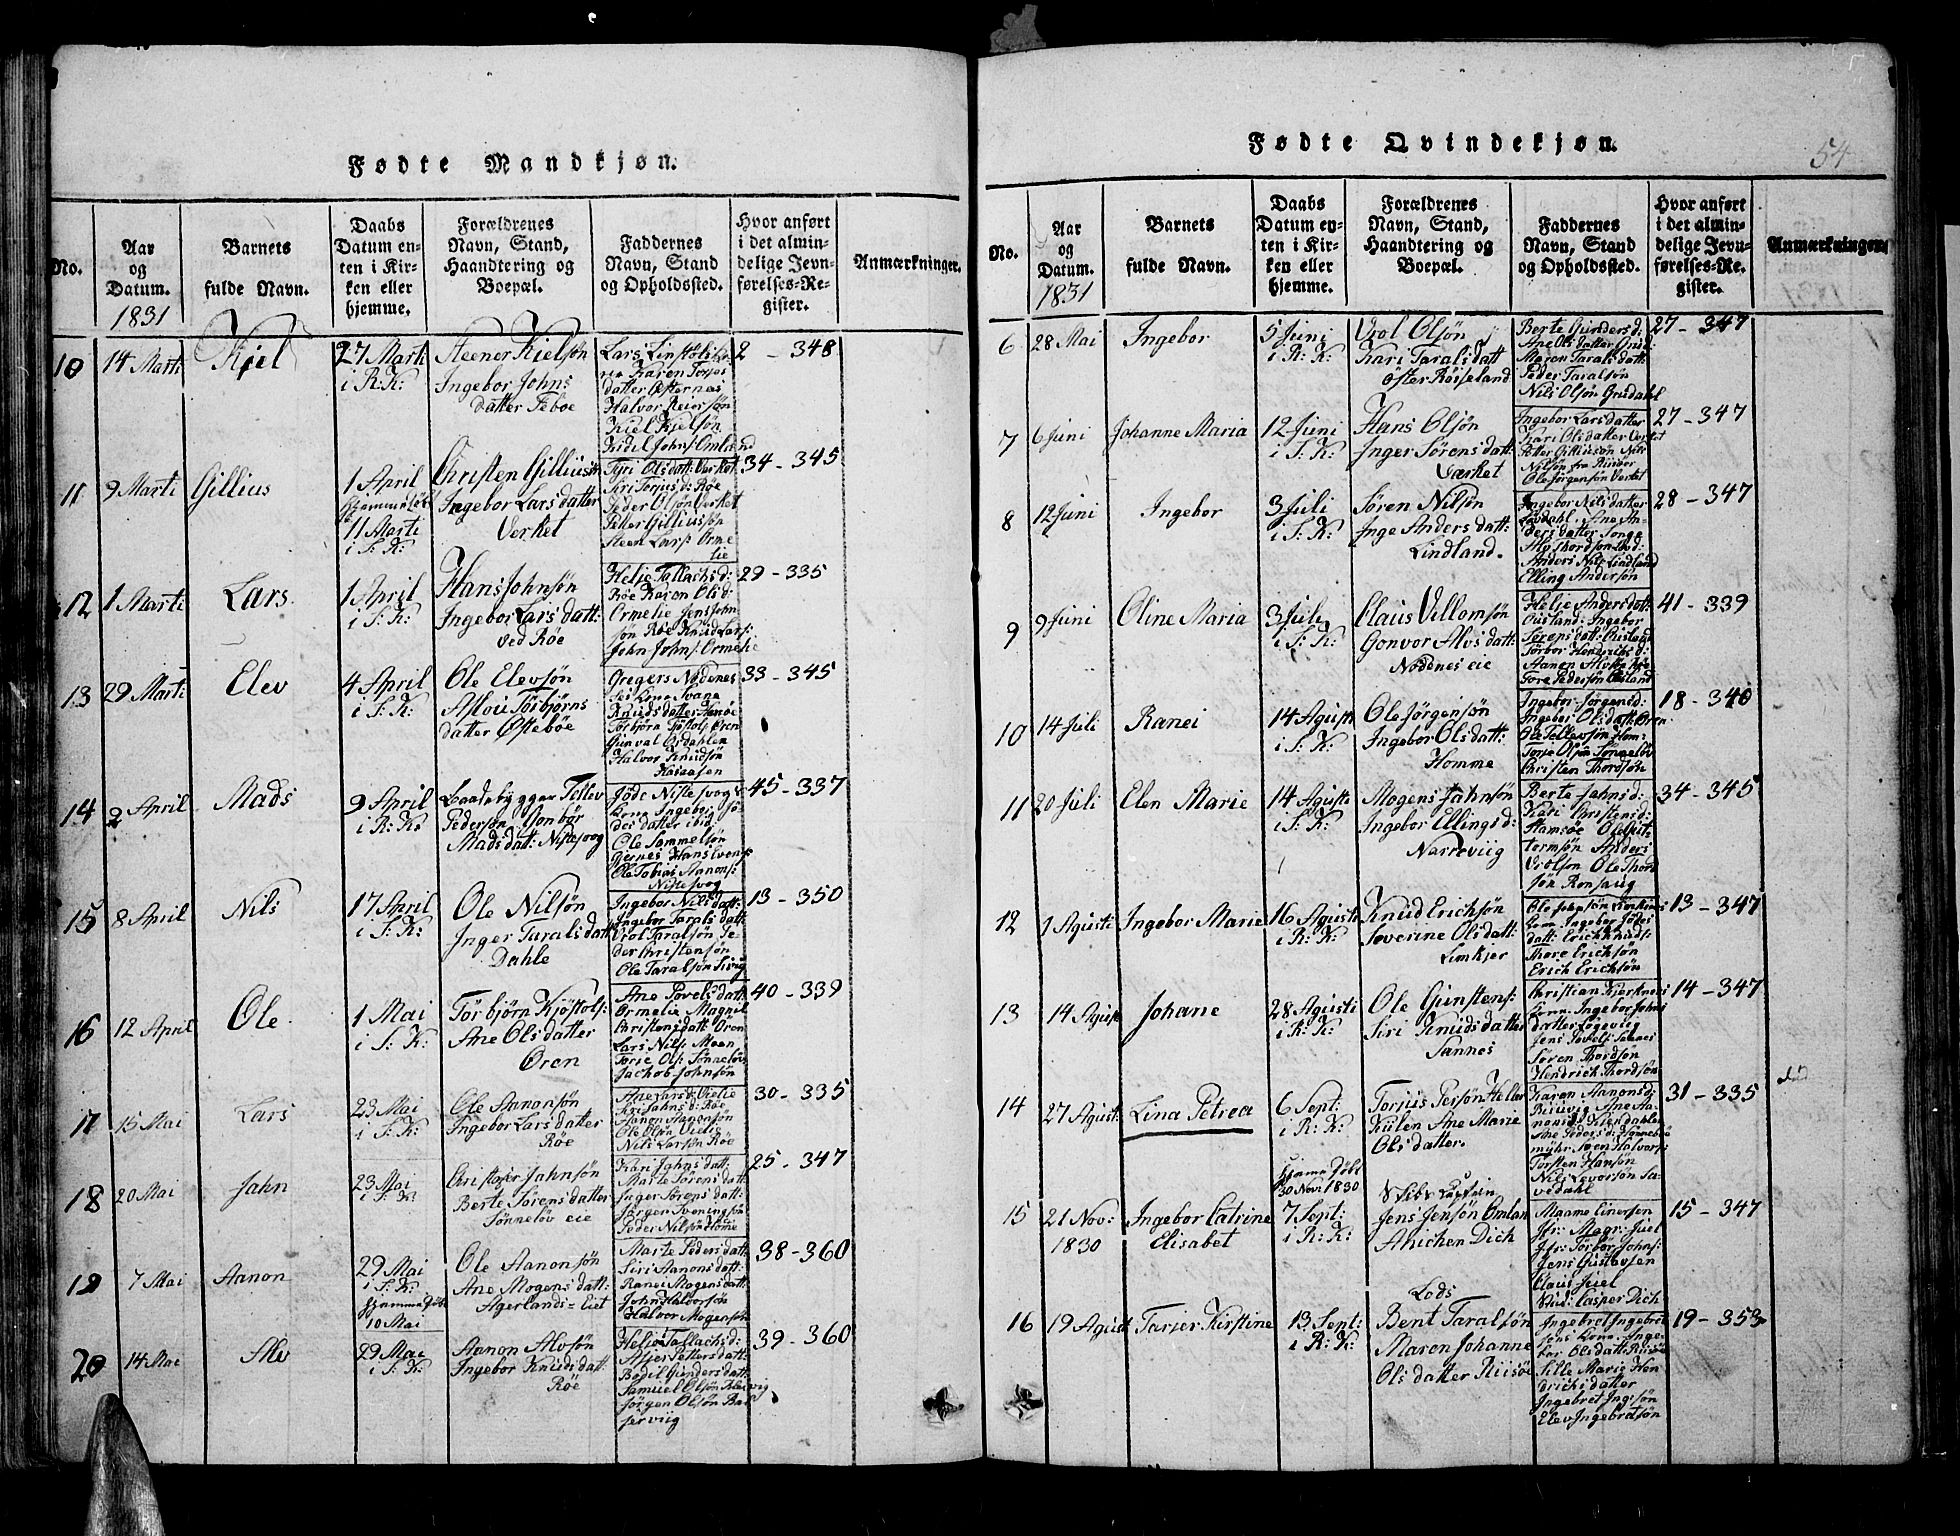 Fødte Mandkjøn.
No.
Aar og Datum. 1831
Barnets fulde Navn.
Daabs Datum enten i Kirken eller hjemme.
Forældrenes Navn, Stand, Haandtering og Boepæl.
Faddernes Navn, Stand og Opholdssted.
Hvor anført i det almindelige Jevnførelses-Register.
Anmærkninger.
10
14 Marti
Kjel
27 Marti
i R: K:
Steener Kielsøn
Ingebor Johns
datter Feboe
datter Østernes
Halvor Reiersøn
Kiel Kjelsøn
2 - 348
11
9 Marti
Gillius
1 April
11 Marti
i S: K:
Christen Gilliussøn
Ingebor Larsdatter
Verket
Tyri Olsdatt: Verket
Siri Terjusd: Røe
Peder Olsøn Verket
Petter Gilliussøn
Steen Lars: Orme
lie
34 - 345
12
1 Marti
Lars.
1 April
i S: K:
Hans Johnsøn
Ingebor Larsdatt:
ved Røe
Helje Tallachsd:
Røe Karen Olsd:
Ormelie Jens John
søn Røe Knud Lars:
John Johns: Ormelie
29 - 335
13
29 Marti
Elev
4 April
i S: K:
Ole Elevsøn
Aslou Törbjörns
datter Østebøe
Gregers Nødenes
Knudsdatter
Gunval Osdahlen
Halvor Knudsøn
33 - 345
14
2 April
Mads
9 April
i R: K:
Baadsbygger Tellev
Pedersøn
Madsdatt: Nistesvog
Kone Ingebor Pe
der datter ibid
Ole Sammelsøn
Ole Tobias Aanons:
Nistesvog
45 - 337
15
8 April
Nils
17 April
i S: K:
Ole Nilsøn
Inger Taralsdatt
Dahle
Ingebor Nilsdatt:
Ingebor Taralsdatt
Vrol Taralsøn Pe
der Christensøn
Ole Taralsøn
13 - 350
16
12 April
Ole
1 Mai
i S: K:
Törbjørn Kjøstols:
Ane Olsdatter
Oren
Ane Povelsdatt:
Ormelie Magnil
Christensdatt Oren
Lars Nils: Moen
Torje Ols: Sønneløv
Jachob Johnsøn
40 - 339
17
15 Mai
Lars
23 Mai
i S: K:
Ole Aanonsøn
Ingebor Larsdatter
Røe
Kari Jahnsd: Røe
Aanon Aanensøn
Nils Larsøn Røe
30 - 335
18
20 Mai
Jahn
23 Mai
i S: K:
Christofer Jahnsøn
Berte Sørensdatter
Sønneløv eie
Kari Jahnsdatt:
Marte Sörensdatt:
Inger Sörensdatt:
Jørgen Tveningsøn
Peder Nilsøn Home
25 - 347
19
7 Mai
Aanon
29 Mai
i S: K:
hjemmedøbt
10 Mai
Ole Aanonsøn
Ane Mogensdatt:
Agerlands-Eiet
Marte Pedersdatt:
Siri Aanonsdatt:
Ranei Mogensdatt:
John Halvorsøn
Halvor Mogensøn
38 - 360
20
14 Mai
Alv
29 Mai
i S: K:
Aanon Alvsøn
Ingebor Knudsdatt:
Røe
Helje Tallachsd:
Asjer Pettersdatt:
Bodil Gundersdatt:
Samuel Olsøn
Jørgen Olsøn Bas
serviig
39 - 360
Fødte Qvindekjøn.
54
No.
Aar og Datum. 1831
Barnets fulde Navn.
Daabs Datum enten i Kirken eller hjemme.
Forældrenes Navn, Stand, Haandtering og Boepæl.
Faddernes Navn, Stand og Opholdssted.
Hvor anført i det almindelige Jevnførelses-Register.
Anmærkninger.
6
28 Mai
Ingebor
5 Juni
i R: K:
Vrol Olsøn
Kari Taralsdatt
Øster Røiseland
Berte Gundersd:
Ane Olsdatter
Maren Taralsdatt:
Peder Taralsøn
Nils Olsøn Grudahl
27 - 347
7
6 Juni
Johanne Maria
12 Juni
i S: K:
Hans Olsøn
Inger Sørensdatt:
Værket
Ingebor Larsdatter
Kari Olsdatter Verket
Petter Gilliusøn Nils
Nilsøn fra Riisöer
Ole Jørgensøn Verket
27 - 347
8
12 Juni
Ingebor
3 Juli
i S: K:
Søren Nilsøn
Inge Andersdatt:
Lindland.
Ingebor Nilsdatter
Lövdahl, Ane An
dersdatter Songe
Anders Nils: Lindland
Elling Andersøn
28 - 347
9
9 Juni
Oline Maria
3 Juli
i S: K:
Claus Villomsøn
Gonvor Alvsdatt:
Nødenes eie
Helje Andersdatt:
Ousland: Ingebor
Sørensdatt: Ousland
Törbor Hendrichsd:
Tore Pedersøn Ousland
41 - 339
10
14 Juli
Ranei
14 Agusti
i S: K:
Ole Jørgensøn
Ingebor Olsdatt:
Homme
Ingebor Jörgensd:
Ingebor Olsdatt: Oren
Ole Tellevsøn Hom:
Torje Olsøn Sønneløv
Christen Thordsøn
18 - 340
11
20 Juli
Elen Marie
14 Agusti
i S: K:
Mogens Jahnsøn
Ingebor Ellingsd:
Narreviig
Berte Jahnsd:
Kari Christensd:
Hamsøe Ole Gut
tormsøn Anders
Vrolsøn Ole Thord
søn Ronsaug
34 - 345
12
1 Agusti
Ingebor Marie
16 Agusti
i R: K:
Knud Erichsøn
Severine Olsdatt:
Limkjer
Ole Johnsøn
Kone Ingebor Jodes
datt: Erich Knuds:
Thore Erichsøn
Erich Erichsøn
13 - 347
13
14 Agusti
Johane
28 Agusti
i R: K:
Ole Gunstens:
Siri Knudsdatter
Sannes
Christian Kjerknes
Kone Ingebor Johns
datter
Jens Povels: Sannes
Søren Thordsøn
Hendrich Thordsøn
14 - 347
14
27 Agusti
Lina Petrea
6 Sept:
i R: K:
Torjus Persøn Heller
Kiilen Ane Marie
Olsdatter.
Karen Aanonsd:
Riisvig Ane Aa
nonsd:
Ane Pedersd:
Torsten Hansøn
Nils Levorsøn Sa
vedahl
31 - 335
15
21 Nov:
1830
Ingebor Catrine
Elisabet
hjemmedøbt
30 Nov: 1830
7 Sept:
i R: K:
Skibs Captein
Jens Jensøn Omlan
Anichen Dich
Madme Einersen
Jfr: Magr: Juel
Jfr: Törbor Johns:
Jens Gustavsen
Claus Juel
Stud: Casper Dich
15 - 347
16
19 Agust
Tarjer Kirstine
13 Sept:
i R: K:
Lods
Bent Taralsøn
Maren Johanne
Olsdatter Riisøe
Ingebret Ingebret
sens Kone Inge
bor Olsdatt: Riisøe
Sille Marie Hen
drichsdatter
Ingebret Ingrsøn
Elev Ingebretsøn
19 - 353